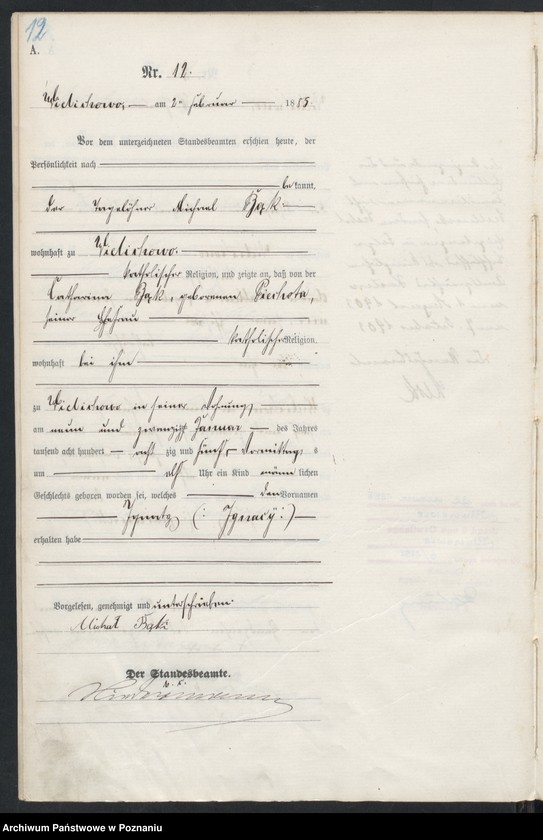 12
A.
Nr. 12.
am 2ten Februar 1885.
Vor dem unterzeichneten Standesbeamten erschien heute, der
Persönlichkeit nach
bekannt,
der Tagelöhner Michael Bąk
wohnhaft zu
katholischer Religion, und zeigte an, daß von der
Catharina Bąk, geborenen Piechota,
seiner Ehefrau
katholischer Religion,
wohnhaft bei ihm
zu in seiner Wohnung
am neun und zwanzigsten Januar des Jahres
tausend acht hundert acht zig und fünf Vormittags
um elf Uhr ein Kind männlichen
Geschlechts geboren worden sei, welches den Vornamen
Ignatz (: Ignacy :)
erhalten habe
Vorgelesen, genehmigt und unterschrieben
Michał
Der Standesbeamte.
Archiwum Państwowe w Poznaniu